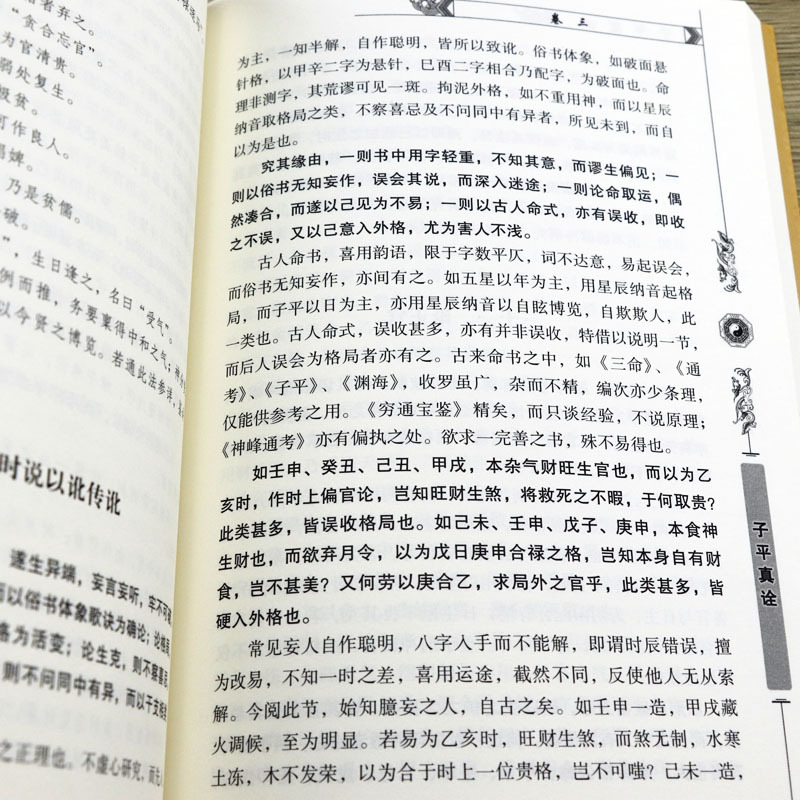 者弃之。
“贪合忘官”。
为官清贵。
弱处复生。
极贫。
可作良人。
娼婢。
乃是贫儒。
破。
”，生日逢之，名曰“受气”。
例而推，务要禀得中和之气；神
以今贤之博览。若通此法参详，
时说以讹传讹
遂生异端，妄言妄听，牢不可
以俗书体象歌诀为确论；论
为活变；论生克，则不
则不问同中有异，而以干支
之正理也。不虚心研究，而先
卷三
为主，一知半解，自作聪明，皆所以致讹。俗书体象，如破面悬
针格，以甲辛二字为悬针，巳酉二字相合乃配字，为破面也。命
理非测字，其荒谬可见一斑。拘泥外格，如不重用神，而以星辰
纳音取格局之类，不察喜忌及不问同中有异者，所见未到，而自
以为是也。
究其缘由，一则书中用字轻重，不知其意，而谬生偏见；一
则以俗书无知妄作，误会其说，而深入迷途；一则论命取运，偶
然凑合，而遂以己见为不易；一则以古人命式，亦有误收，即收
之不误，又以己意入外格，尤为害人不浅。
古人命书，喜用韵语，限于字数平仄，词不达意，易起误会，
而俗书无知妄作，亦间有之。如五星以年为主，用星辰纳音起格
局，而子平以日为主，亦用星辰纳音以自眩博览，自欺欺人，此
一类也。古人命式，误收甚多，亦有并非误收，特借以说明一节，
而后人误会为格局者亦有之。古来命书之中，如《三命》、《通
考》、《子平》、《渊海》，收罗虽广，杂而不精，编次亦少条理，
仅能供参考之用。《穷通宝鉴》精矣，而只谈经验，不说原理；
《神峰通考》亦有偏执之处。欲求一完善之书，殊不易得也。
如壬申、癸丑、己丑、甲戌，本杂气财旺生官也，而以为乙
亥时，作时上偏官论，岂知旺财生煞，将救死之不暇，于何取贵？
此类甚多，皆误收格局也。如己未、壬申、戊子、庚申，本食神
生财也，而欲弃月令，以为戊日庚申合禄之格，岂知本身自有财
食，岂不甚美？又何劳以庚合乙，求局外之官乎，此类甚多，皆
硬入外格也。
常见妄人自作聪明，八字入手而不能解，即谓时辰错误，擅
为改易，不知一时之差，喜用运途，截然不同，反使他人无从索
解。今阅此节，始知臆妄之人，自古之矣。如壬申一造，甲戌藏
火调候，至为明显。若易为乙亥时，旺财生煞，而煞无制，水寒
土冻，木不发荣，以为合于时上一位贵格，岂不可嗤？己未一造，
子平真诠